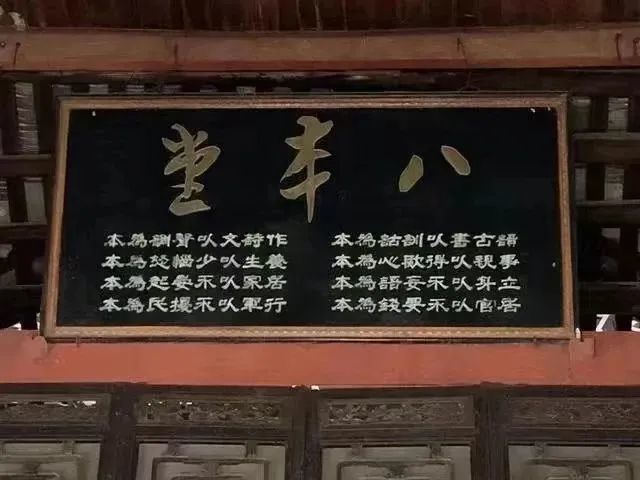 八本堂
讀古書以訓詁為本
作詩文以聲調為本
事親以得歡心為本
養生以少惱怒為本
立身以不妄語為本
居家以不晏起為本
居官以不要錢為本
行軍以不擾民為本